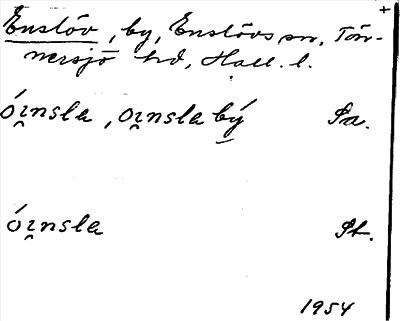 +
Enslöv, by, Enslövs sn, Tön-
nersjö hd, Hall. l.
óı̯nsla, oı̯nsla bý Pa.
óı̯nsla Pt.
1954